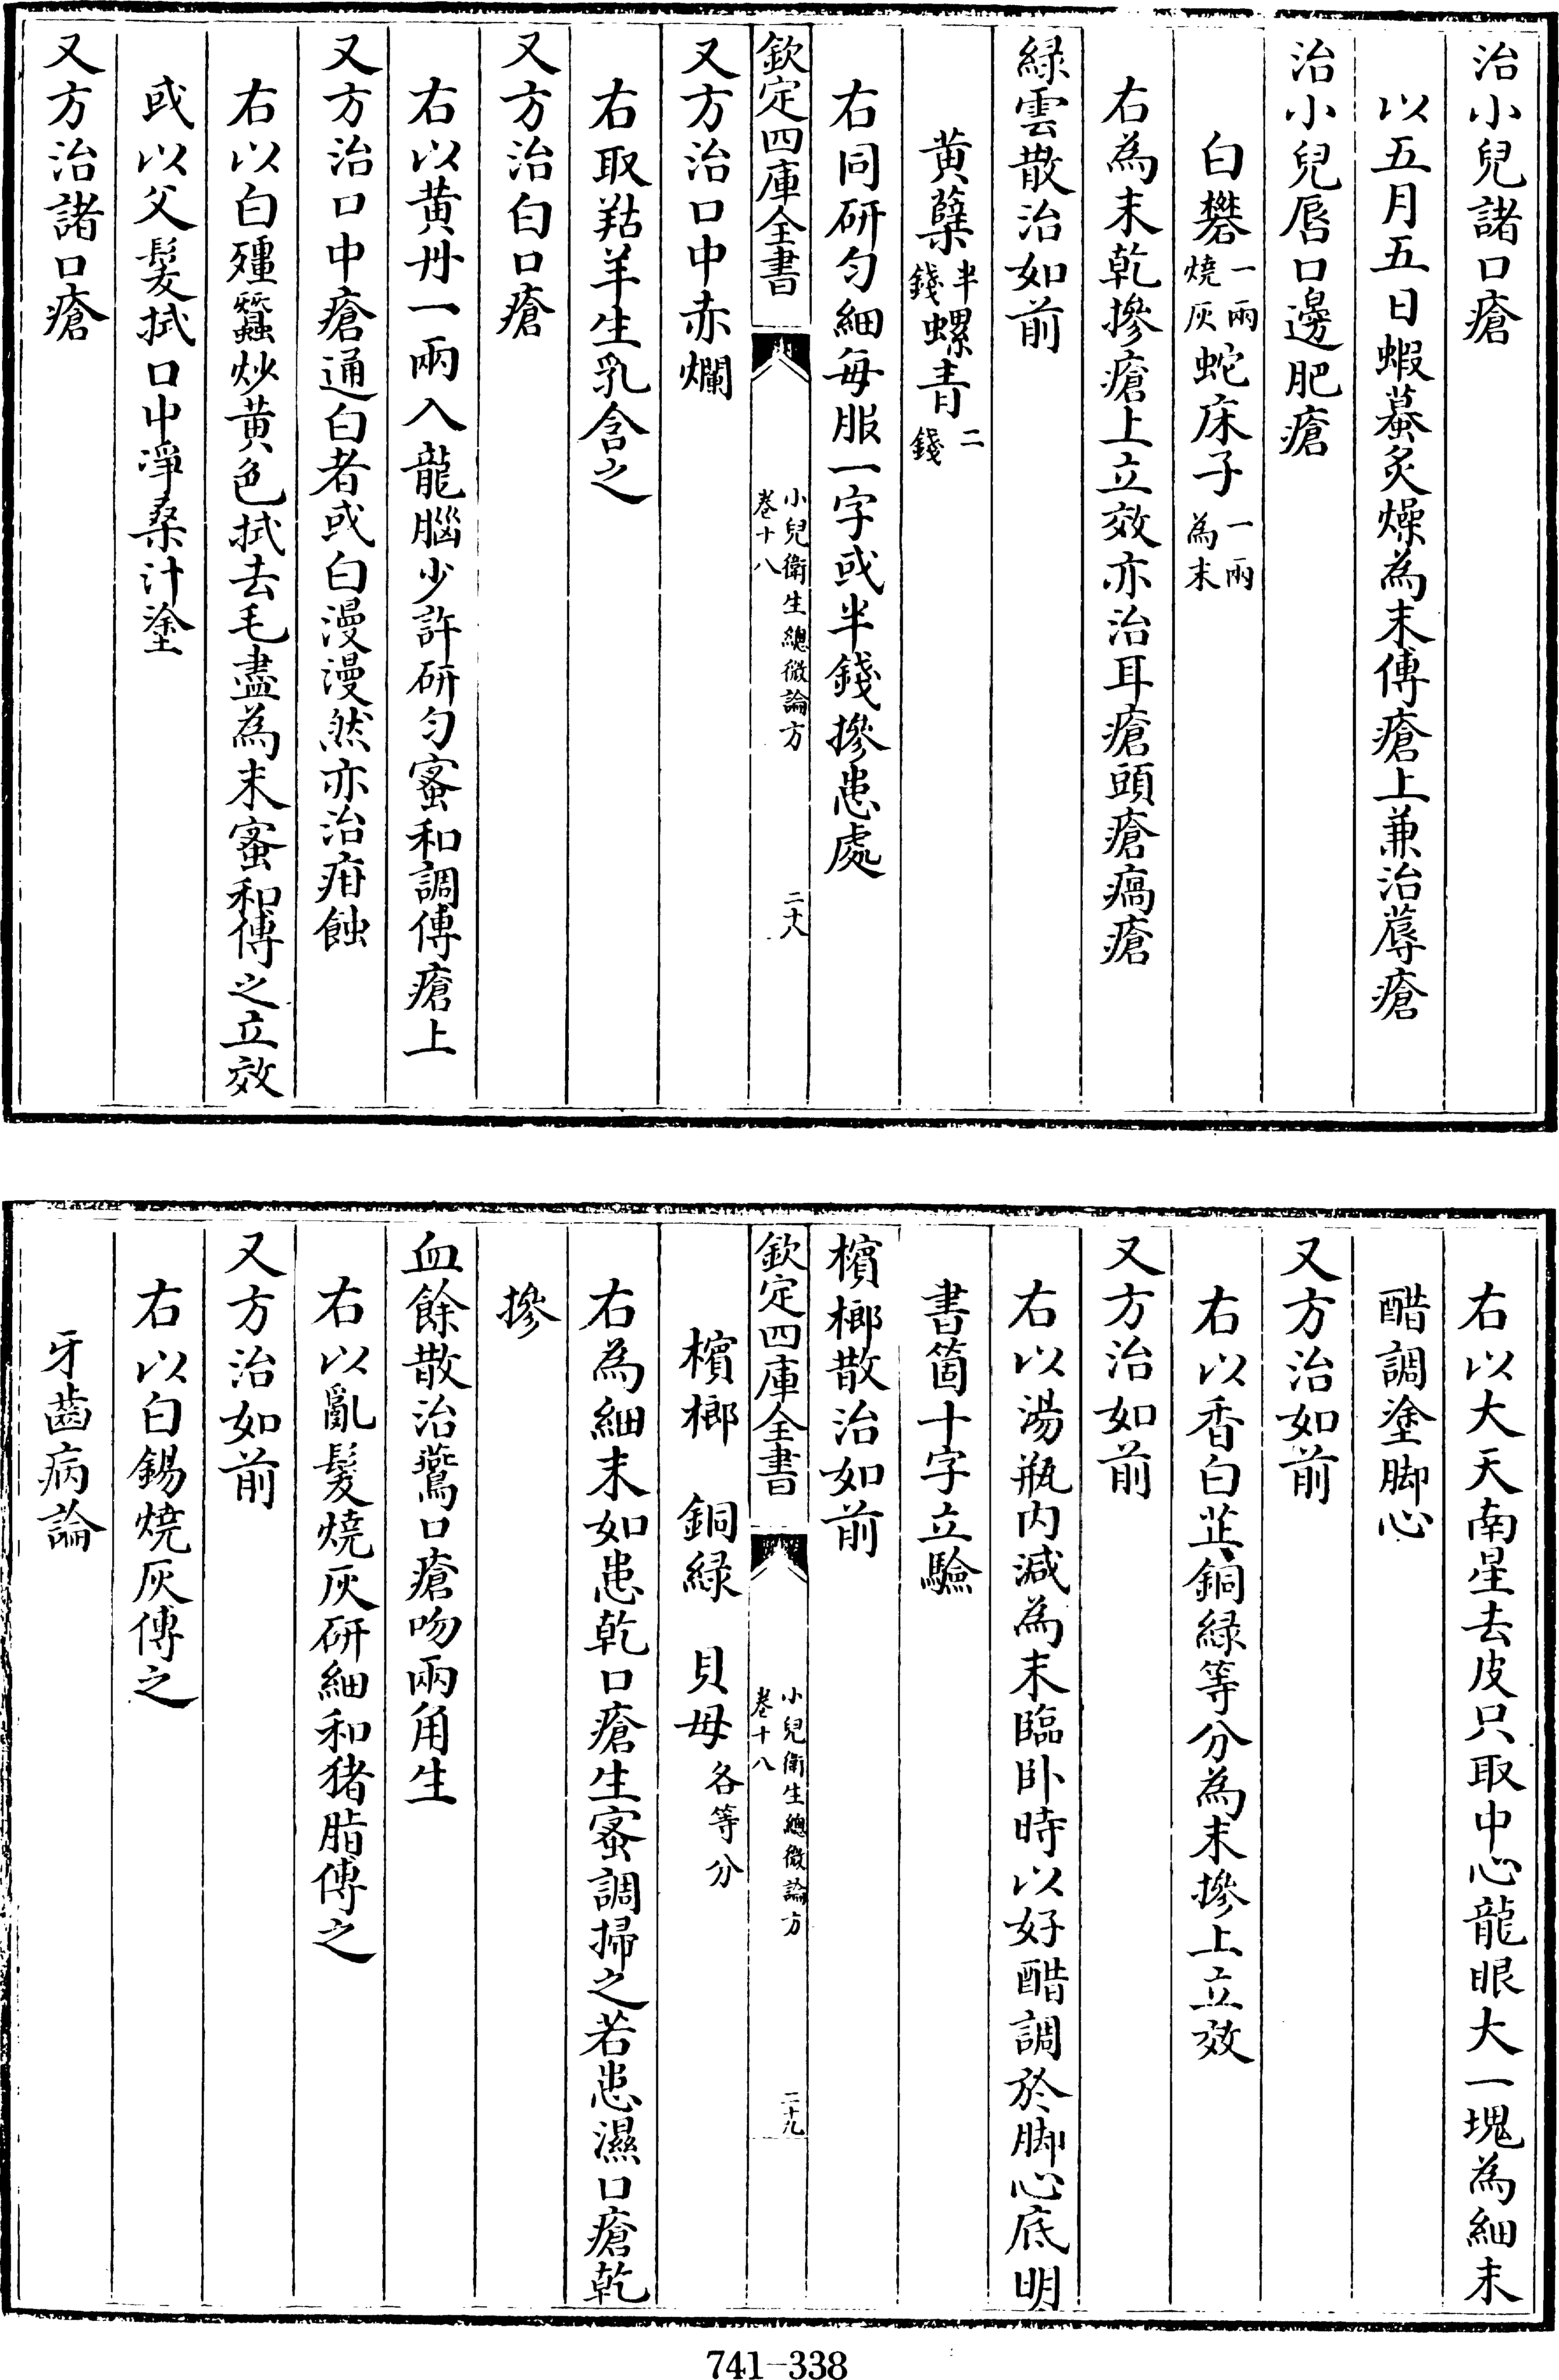 治小兒諸口瘡
以五月五日蝦蟇炙燥為末傅瘡上兼治蓐瘡
治小兒唇口邊肥瘡
白礬一兩燒灰蛇床子一兩為末
右為末乾摻瘡上立效亦治耳瘡頭瘡瘑瘡
緑雲散治如前
黄蘗半錢螺青二錢
右同研匀細每服一字或半錢摻患處
欽定四庫全書
小兒衛生總微論方
卷十八
二十八
又方治口中赤爛
右取羖羊生乳含之
又方治白口瘡
右以黄丹一兩入龍腦少許研匀蜜和調傅瘡上
又方治口中瘡通白者或白漫漫然亦治疳蝕
右以白殭蠶炒黄色拭去毛盡為末蜜和傅之立效
或以父髮拭口中淨桑汁塗
又方治諸口瘡
右以大天南星去皮只取中心龍眼大一塊為細末
醋調塗脚心
又方治如前
右以香白芷銅緑等分為末摻上立效
又方治如前
右以湯瓶内減為末臨卧時以好醋調於脚心底明
書箇十字立驗
檳榔散治如前
欽定四庫全書
小兒衛生總微論方
卷十八
二十九
檳榔　銅緑　貝母各等分
右為細末如患乾口瘡生蜜調掃之若患濕口瘡乾
摻
血餘散治鷰口瘡吻兩角生
右以亂髮燒灰研細和猪脂傅之
又方治如前
右以白錫燒灰傅之
牙齒病論
741-338